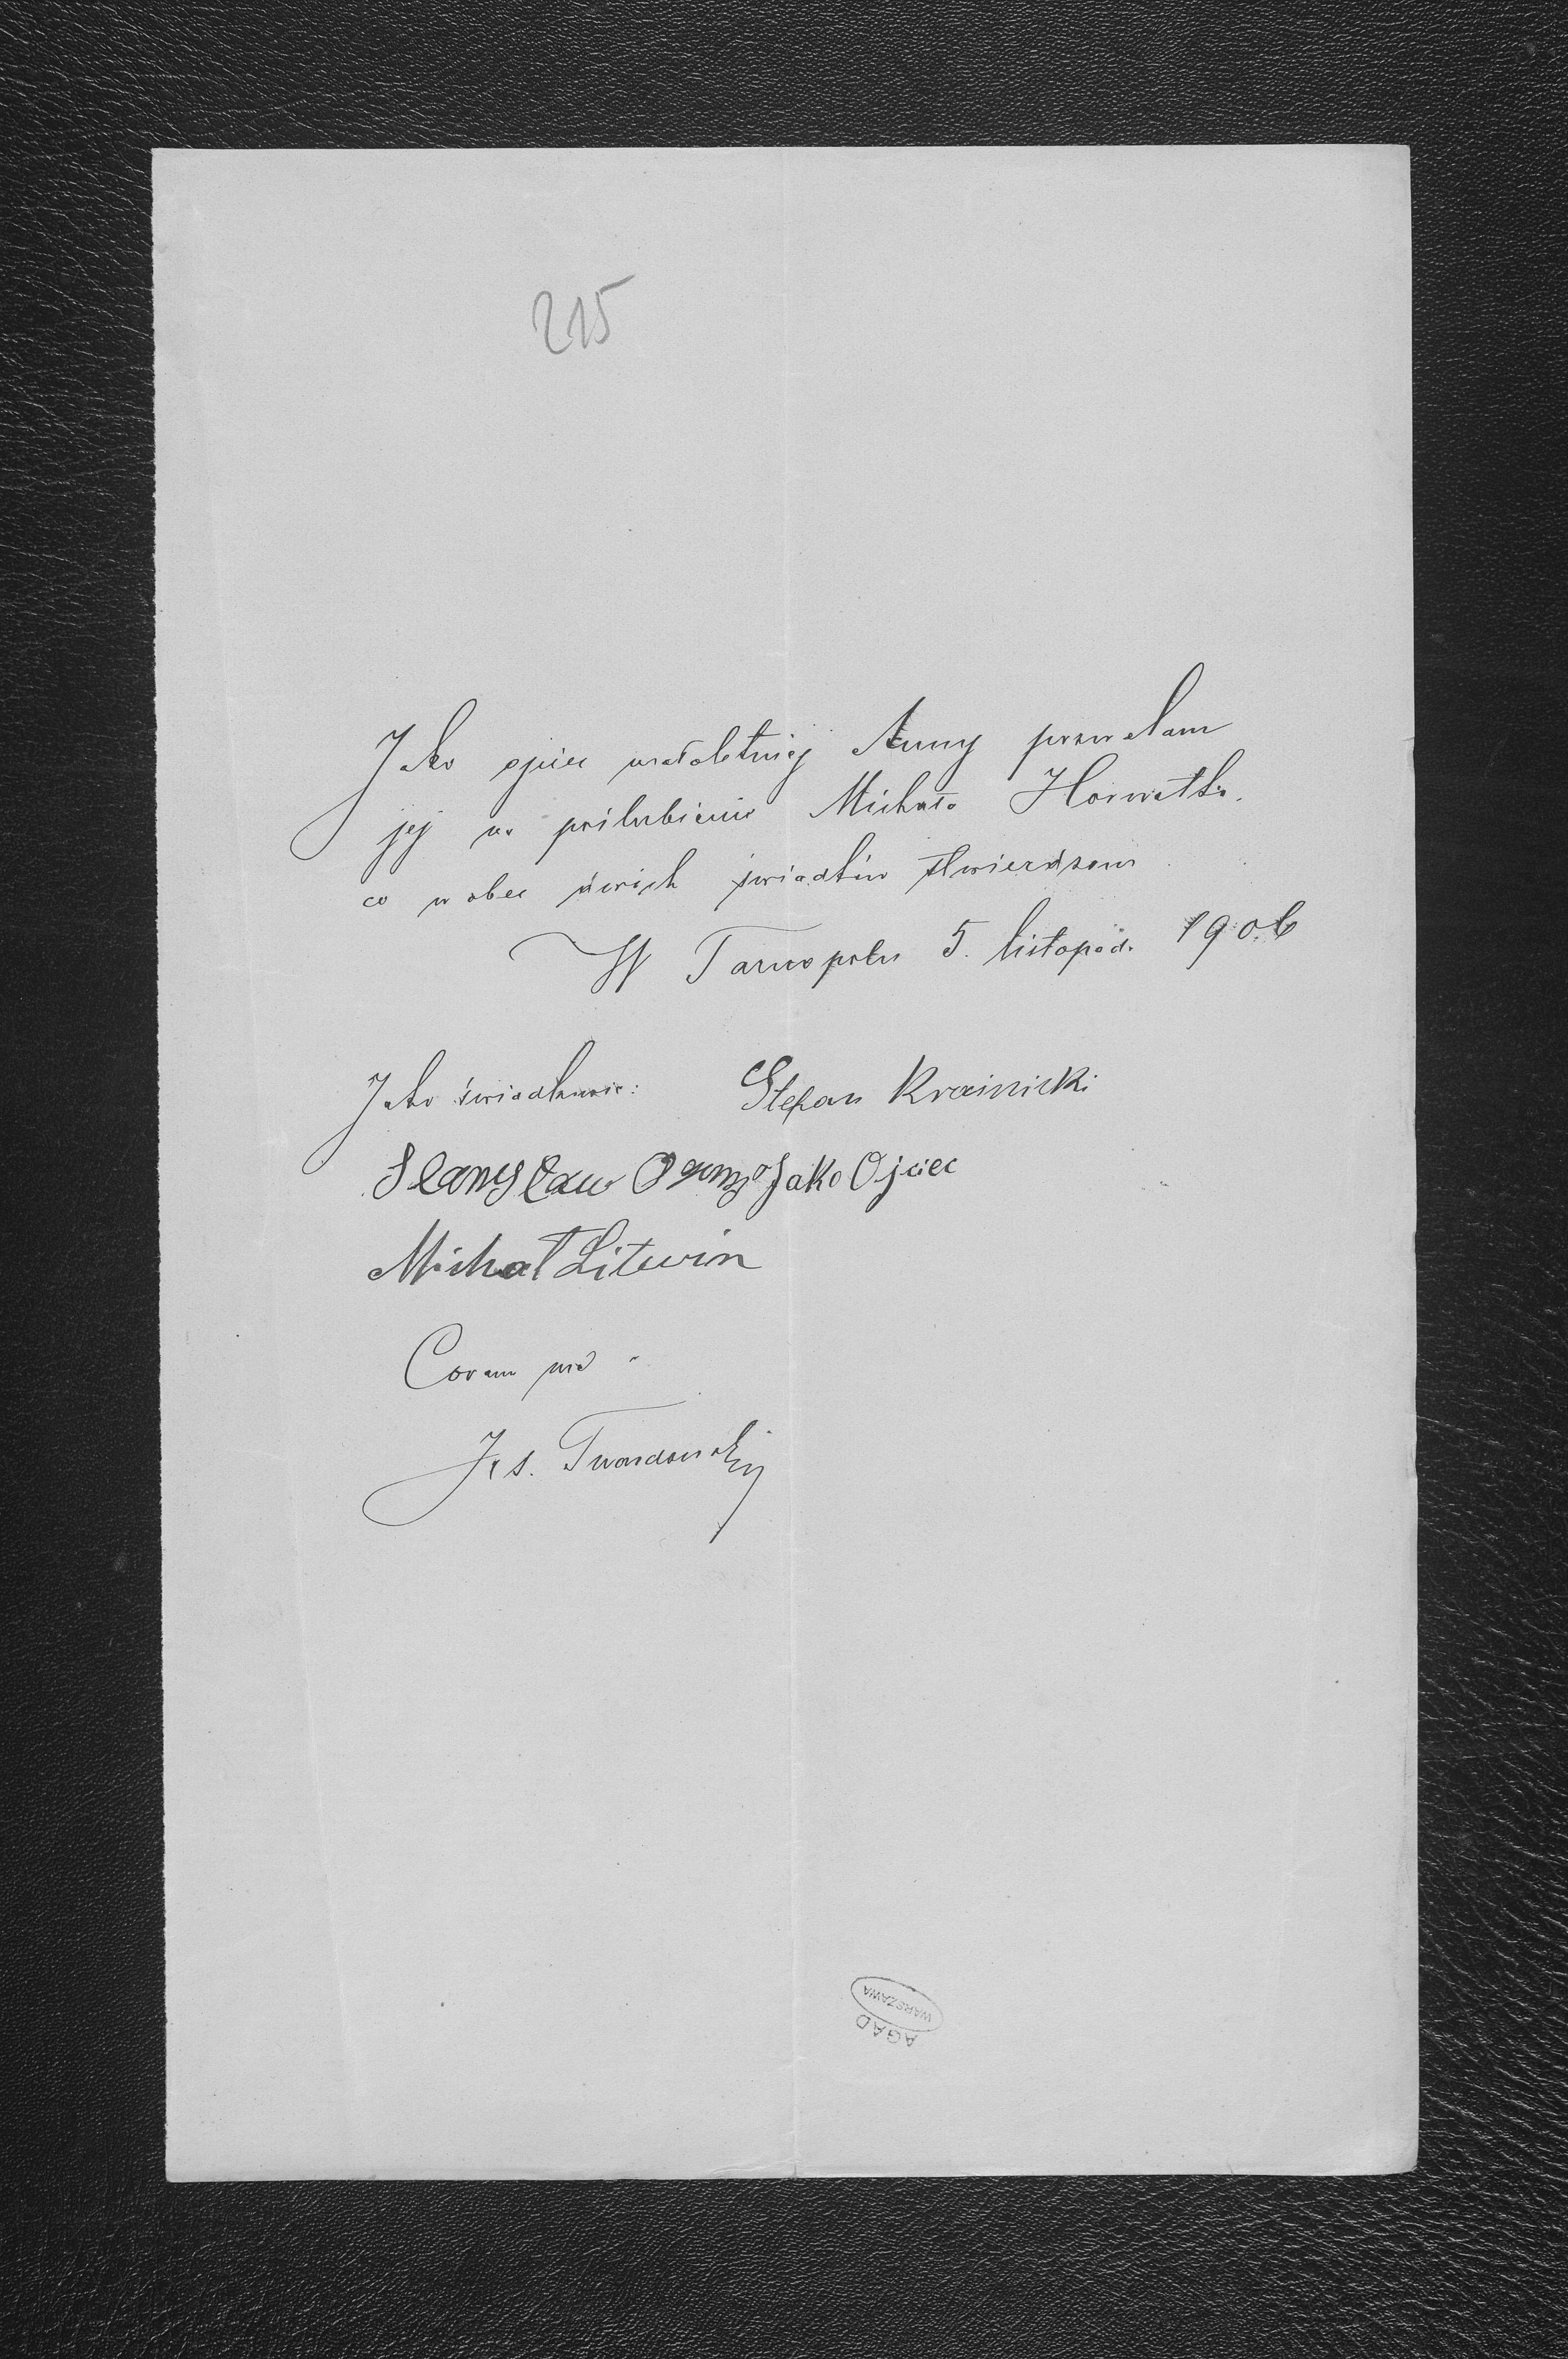 215
Jako ojciec małoletniej Anny pozwalam
jej na poślubienie Michała Horwatha.
co wobec dwóch świadków stwierdzam
W Tarnopolu 5. listopad. 1906
Jako świadkowie: Stefan Krainicki
Stanysław Jako Ojciec
Michał Litwin
Coram me
Jos. Twardowski
AGAD
WARSZAWA